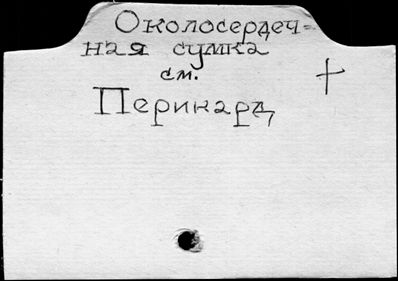 Околосердеч=
ная сумка
см.
Перикард